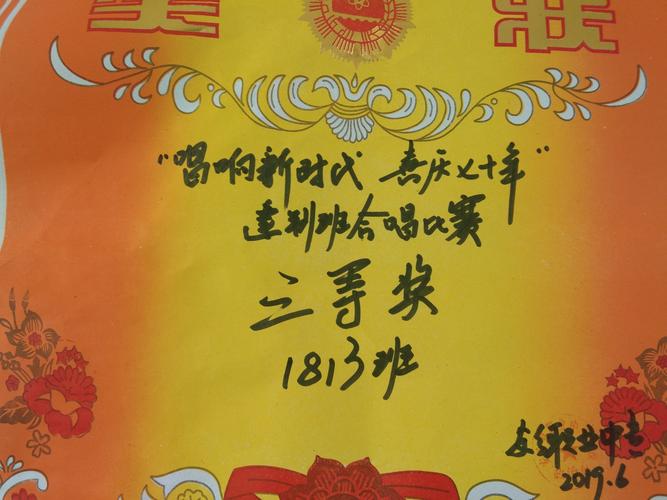 “唱响新时代 喜庆七十年”
建制班合唱比赛
三等奖
1813班
安乡职业中专
2019.6